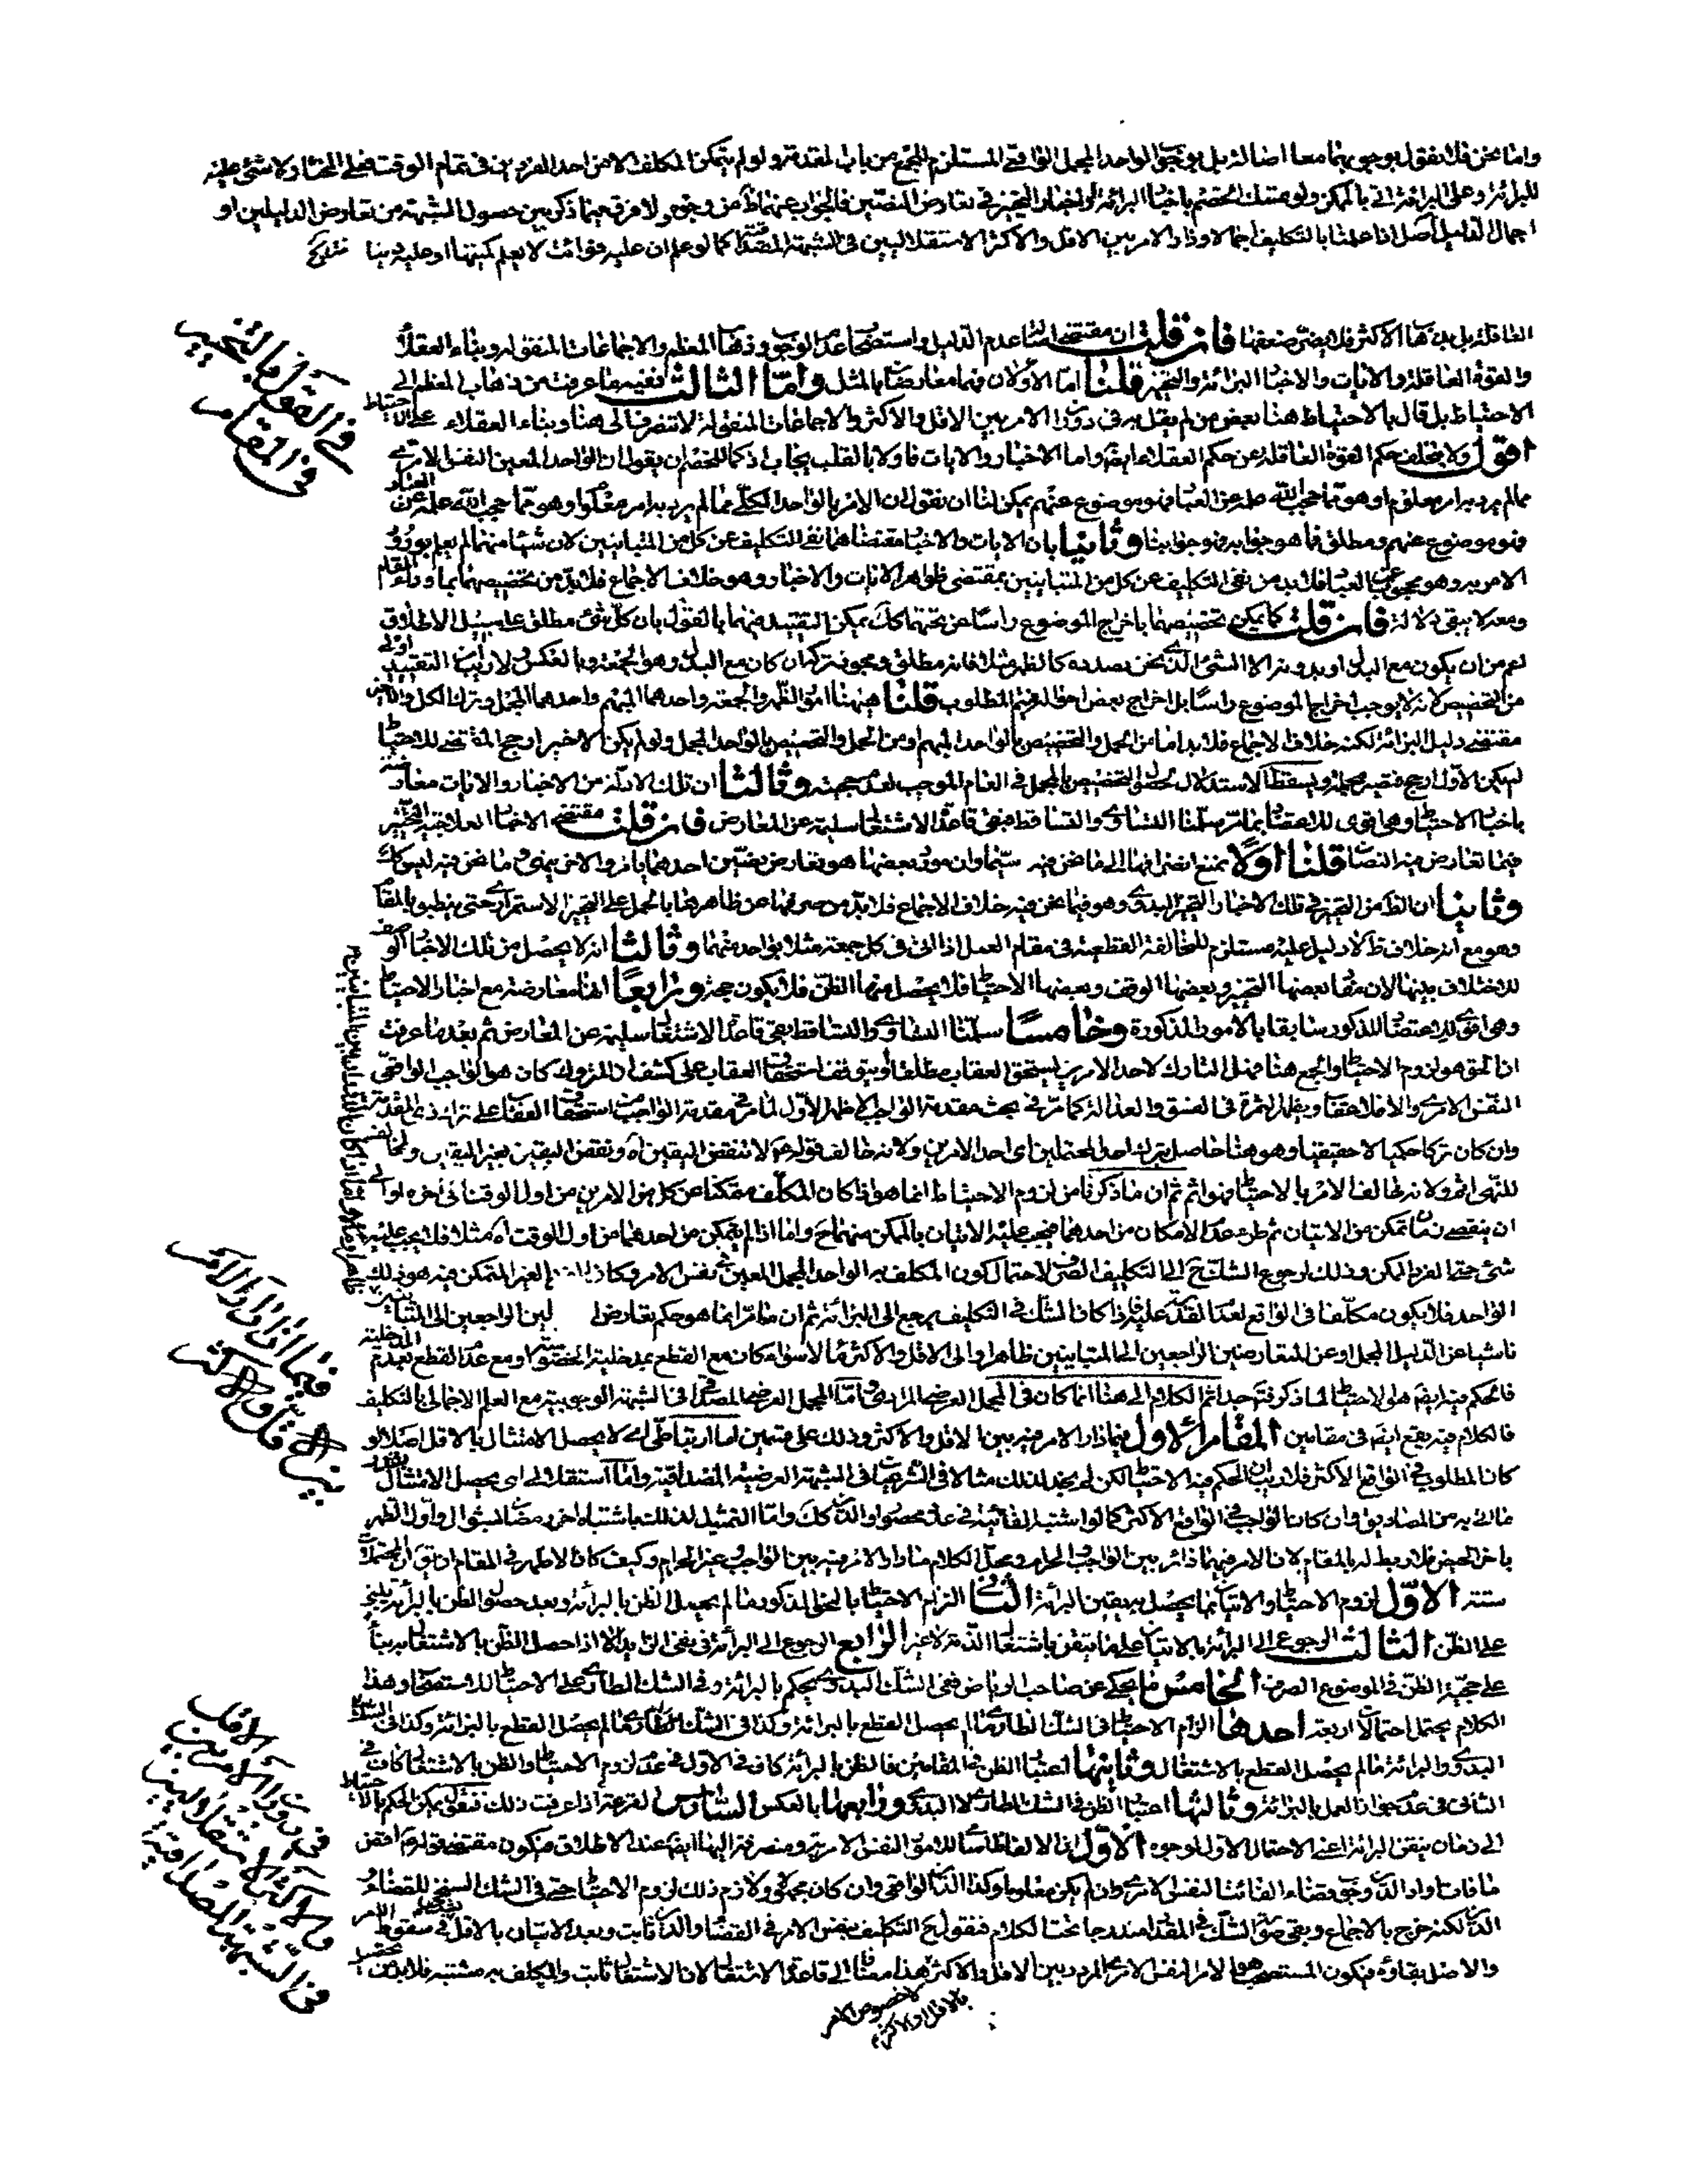 واما نحن فلا نقول بوجوبهما معا اصالة بل بوجوب الواحد المجمل الواقعي المستلزم للجمع من باب المقدمة ولو لم يتمكن المكلف الا من احد الفردين في تمام الوقت فعلى المختار لا شئ عليه
للبرائة وعلى البرائة اتى بالممكن ولو تمسك الخصم باخبار البرائة او اخبار التخيير في تعارض النصين فالجواب عنهما ظ من وجوه ولا فرق فيما ذكر بين حصول الشبهة من تعارض الدليلين او
اجمال الدليل اصل اذا علمنا بالتكليف اجمالا ودار الامر بين الاقل والاكثر الاستقلاليين في الشبهة المصداقية كما لو علم ان عليه فوائت لا يعلم كميتها او عليه دينا
العاقلة بل بدنها الاكثر فلا يضر ضعفها فان قلت ان مقتضى اصالة عدم الدليل واستصحاب عدم الوجوب وذهاب المعظم والاجماعات المنقولة وبناء العقلاء
والقوة العاقلة والايات والاخبار البرائة والتخيير قلنا اما الاولان فهما معارضان بالمثل واما الثالث ففيه ما عرفت من ذهاب المعظم الى
الاحتياط بل قال بالاحتياط هنا بعض من لم يقل به في دوران الامر بين الاقل والاكثر والاجماعات المنقولة لا تنصرف الى هنا وبناء العقلاء على الاحتياط
اقول ولا يتخلف حكم القوة العاقلة عن حكم العقلاء ايضا واما الاخبار والايات فاولا بالقلب بيجاب اذ كما للخصم ان يقول ان الواحد المعين النفس الامرى
مما لم يرد به امر معلوم او هو مما حجب الله علمه عن العباد فهو موضوع عنهم يمكن لنا ان نقول ان الامر بالواحد الكلي مما لم يرد به امر معلوم وهو مما حجب الله علمه عن العباد
فهو موضوع عنهم ومطلق فما هو جوابه فهو جوابنا وثانيا بان الايات والاخبار مقتضاهما نفي التكليف عن كل من المتباينين لان شيئا منهما لم يعلم ورود
الامر به وهو محجوب عن العباد فلا بد من نفي التكليف عن كل من المتباينين بمقتضى ظواهر الايات والاخبار وهو خلاف الاجماع فلا بد من تخصيصهما بما وراء المقام
ومعه لا يبقى دلالة فان قلت كما يمكن تخصيصهما باخراج الموضوع راسا عن تحتهما كك يمكن التقييد فيهما بالقول بان كل شئ مطلق على سبيل الاطلاق
اعم من ان يكون مع البدل او بدونه الا الشئ الذي نحن بصدده كالظهر مثلا فانه مطلق ومجوز تركه ان كان مع البدل وهو الجمعة وبالعكس ولا ريب ان التقييد اولى
من التخصيص لانه لا يوجب اخراج الموضوع راسا بل اخراج بعض احواله فيتم المطلوب قلنا هيهنا امور الظهر والجمعة واحدهما المبهم واحدهما المجمل وترك الكل والاخير
مقتضى دليل البرائة لكنه خلاف الاجماع فلا بد اما من الحمل والتخصيص بالواحد المبهم او من الحمل والتخصيص بالواحد المجمل ولو لم يكن الاخير ارجح المقتضي للاحتياط
لم يكن الاول ارجح فيصير مجملا ويسقط الاستدلال لحصول التخصيص بالمجمل في العام الموجب لعدم حجيته وثالثا ان تلك الادلة من الاخبار والايات معارضة
باخبار الاحتياط وهي اقوى للاعتضاد بما مر سلمنا التساوي والتساقط فتبقى قاعدة الاشتغال سليمة عن المعارض فان قلت مقتضى الاخبار العلاجية التخيير
فيما تعارض فيه النصان قلنا اولا نمنع انصرافها الى ما نحن فيه سيما وان مورد بعضها هو تعارض نصين احدهما يامر والاخر ينهى وما نحن فيه ليس كك
وثانيا ان الظ من التخيير في تلك الاخبار التخيير البدوي وهو فيما نحن فيه خلاف الاجماع فلا بد من صرفها عن ظاهرها بالحمل على التخيير الاستمراري حتى ينطبق بالمقام
وهو مع انه خلاف ظ لا دليل عليه مستلزم للمخالفة القطعية في مقام العمل اذا اتى في كل جمعة مثلا بواحد منهما وثالثا انه لا يحصل من تلك الاخبار الوصف
للاختلاف بينها لان مفاد بعضها التخيير وبعضها الوقف وبعضها الاحتياط فلا يحصل منها الظن فلا يكون حجة ورابعا انها معارضة مع اخبار الاحتياط
وهي اقوى للاعتضاد المذكور سابقا بالامور المذكورة وخامسا سلمنا التساوي والتساقط بقى قاعدة الاشتغال سليمة عن المعارض ثم بعد ما عرفت
ان الحق هو لزوم الاحتياط والجمع هنا فهل التارك لاحد الامرين يستحق العقاب مطلقا او يتوقف استحقاق العقاب على كشف ان المتروك كان هو الواجب الواقعي
النفس الامري والا فلا عقاب ويظهر الثمرة في الفسق والعدالة كما مر في بحث مقدمة الواجب الاظهر الاول لما مر في مقدمة الواجب من استحقاق العقاب على ترك ذي المقدمة
وان كان تركا حكميا لا حقيقيا وهو هنا حاصل بترك احد المحتملين اي احد الامرين ولانه خالف قوله لا تنقض اليقين اه ونقض اليقين بغير اليقين
للنهي اثم ولانه خالف الامر بالاحتياط فهو اثم ثم ان ما ذكرنا من لزوم الاحتياط انما هو اذا كان المكلف متمكنا من كل من الامرين من اول الوقت الى اخره او الى
ان ينقضي زمان تمكن من الاتيان ثم طرء عدم الامكان من احدهما فيجب عليه الاتيان بالممكن منهما ح واما اذا لم يتمكن من احدهما من اول الوقت اه مثلا فلا يجب عليه
شئ حتى الفرد الممكن وذلك لرجوع الشك ح الى التكليف الصرف لاحتمال كون المكلف به الواحد المجمل المعين في نفس الامر وكان الغير المتمكن فيه هو ذلك
الواحد فلا يكون مكلفا في الواقع لعدم القدرة عليه فاذا كان الشك في التكليف يرجع الى البرائة ثم ان ما مر انما هو حكم تعارض لين الراجعين الى المتباينين
ناشيا عن الدليل المجمل او عن المتعارضين الراجعين الى المتباينين ظاهرا والى الاقل والاكثر مالا سواء كان مع القطع بمدخلية الخصوصية او مع عدم القطع بعدم المدخلية
فالحكم فيه ايضا هو الاحتياط لما ذكر فتجد ثم الكلام الى هنا انما كان في المجمل العرضي المرادي واما المجمل العرضي المصداقي في الشبهة الوجوبية مع العلم الاجمالي بالتكليف
فالكلام فيه يقع ايضا في مقامين المقام الاول فيما دار الامر فيه بين الاقل والاكثر وذلك على قسمين اما ارتباطي اي لا يحصل الامتثال بالاقل اصلا لو
كان المطلوب في الواقع الاكثر فلا ريب ان الحكم فيه الاحتياط لكن لم نجد لذلك مثالا في الشرعيات في الشبهة العرضية المصداقية واما استقلالي اي يحصل الامتثال بقدر
ما اتى به من المصاديق وان كان الواجب في الواقع الاكثر كما لو اشتبه الفائتة في عدد محصور او الدين كك واما التمثيل لذلك باشتباه اخر رمضان بشوال واول الظهر
باخر الحيض فلا ربط له بالمقام لان الامر فيهما دائر بين الواجب والحرام ومحل الكلام ما دار الامر فيه بين الواجب وغير الحرام وكيف كان الاظهر في المقام ان يق ان المحتملات
ستة الاول لزوم الاحتياط والاتيان بما يحصل به يقين البرائة الثاني التزام الاحتياط بالنحو المذكور ما لم يحصل الظن بالبرائة وبعد حصول الظن بالبرائة يبنى
على الظن الثالث الرجوع الى البرائة بالاتيان على ما يتيقن باشتغال الذمة لا غير الرابع الرجوع الى البرائة في نفي الزايد الا اذا حصل الظن بالاشتغال به بناء
على حجية الظن في الموضوع الصرف الخامس ما يحكى عن صاحب الرياض ففي الشك البدوي يحكم بالبرائة وفي الشك الطاري على الاحتياط للاستصحاب وهذا
الكلام يحتمل احتمالات اربعة احدها الزام الاحتياط في الشك الطاري ما لم يحصل القطع بالبرائة وكذا في الشك الطاري ما لم يحصل القطع بالبرائة وكذا في الشك
البدوي والبرائة ما لم يحصل القطع بالاشتغال وثانيها اعتبار الظن في المقامين فالظن بالبرائة كاف في الاول في عدم لزوم الاحتياط والظن بالاشتغال كاف في
الثاني في عدم جواز العمل بالبرائة وثالثها اعتبار الظن في الشك الطاري لا البدوي ورابعها بالعكس السادس القرعة اذا عرفت ذلك فنقول يمكن الحكم بالاحتياط
الى زمان تيقن البرائة اعني الاحتمال الاول لوجوه الاول ان الالفاظ اسام للامور النفس الامرية ومنصرفة اليها ايضا عند الاطلاق فيكون مقتضى قولهم اقض
ما فات واد الدين وجوب قضاء الفائت النفس الامري وان لم يكن معلوما وكذا الدين الواقعي وان كان مجهولا ولازم ذلك لزوم الاحتياط حتى في الشك البدوي للقضاء
الدين لكنه خرج بالاجماع وبقي صورة الشك في المقدار مندرجا تحت الكلام فنقول ح التكليف بنفس الامر في القضاء والدين ثابت وبعد الاتيان بالاقل في سقوط
والاصل بقاؤه فيكون المستصحب هو الامر النفس الامري المردد بين الاقل والاكثر هذا مضافا الى قاعدة الاشتغال لان الاشتغال ثابت والمكلف به مشتبه فلا بد من
بالاقل او الاكثر
لا خصوص الامر
في القول بالتخيير
في المقام
فيما اذا دار الامر
بين الاقل والاكثر
في دوران الامر بين الاقل
والاكثر الاستقلاليين
في الشبهة المصداقية